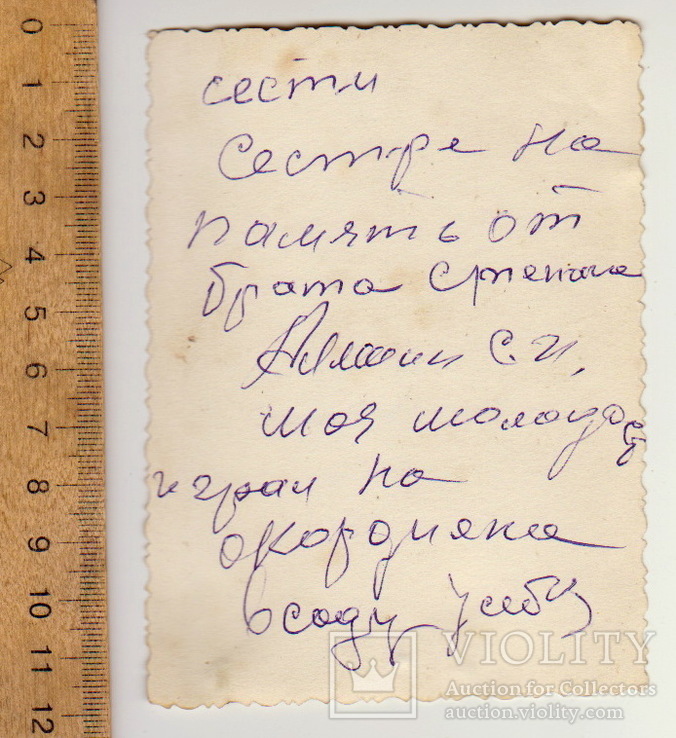 сести
Сестре на
память от
брата Степана
С. И,
моя молодост
играл на
акордияна
в саду
0 1 2 3 4 5 6 7 8 9 10 11 12
VIOLITY
Auction for Collectors
auction.violity.com